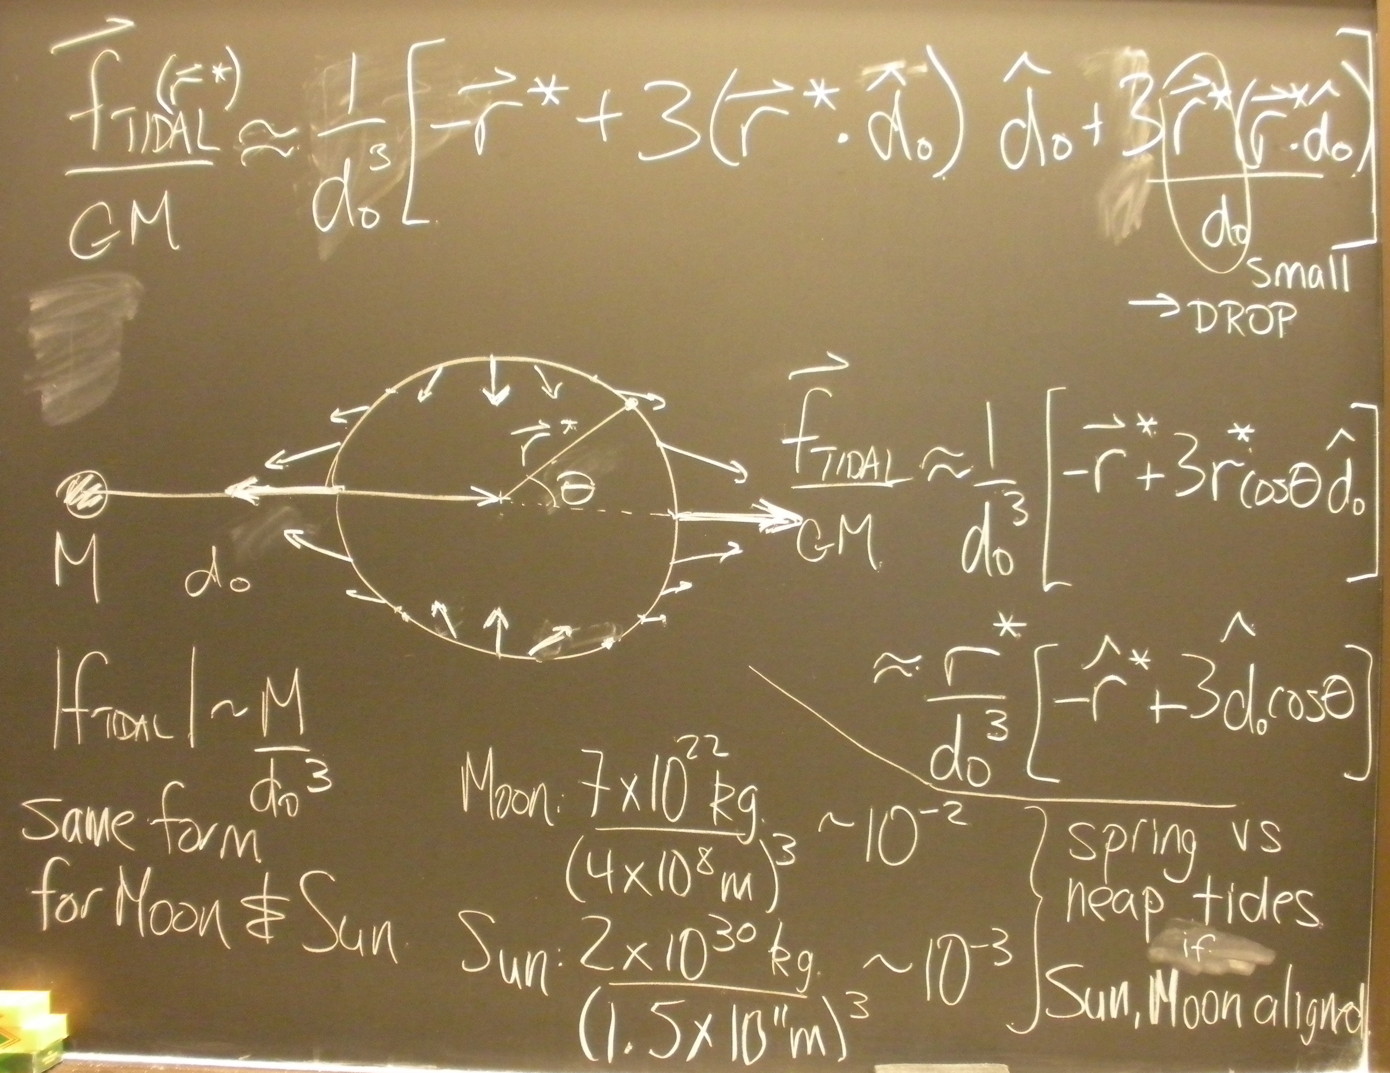 f⃗_TIDAL(r⃗*)/GM ≈ 1/d₀³ [-r⃗* + 3(r⃗*·d̂₀) d̂₀ + 3r⃗*(r⃗*·d̂₀)/d₀]
small
→ DROP
r⃗*
θ
M
d₀
f⃗_TIDAL/GM ≈ 1/d₀³ [-r⃗* + 3r*cosθ d̂₀]
≈ r*/d₀³ [-r̂* + 3d̂₀cosθ]
|f_TIDAL| ~ M/d₀³
same form
for Moon & Sun.
Moon: 7×10²² kg/(4×10⁸m)³ ~10⁻²
Sun: 2×10³⁰ kg/(1.5×10¹¹m)³ ~10⁻³
spring vs
neap tides
if
Sun, Moon aligned